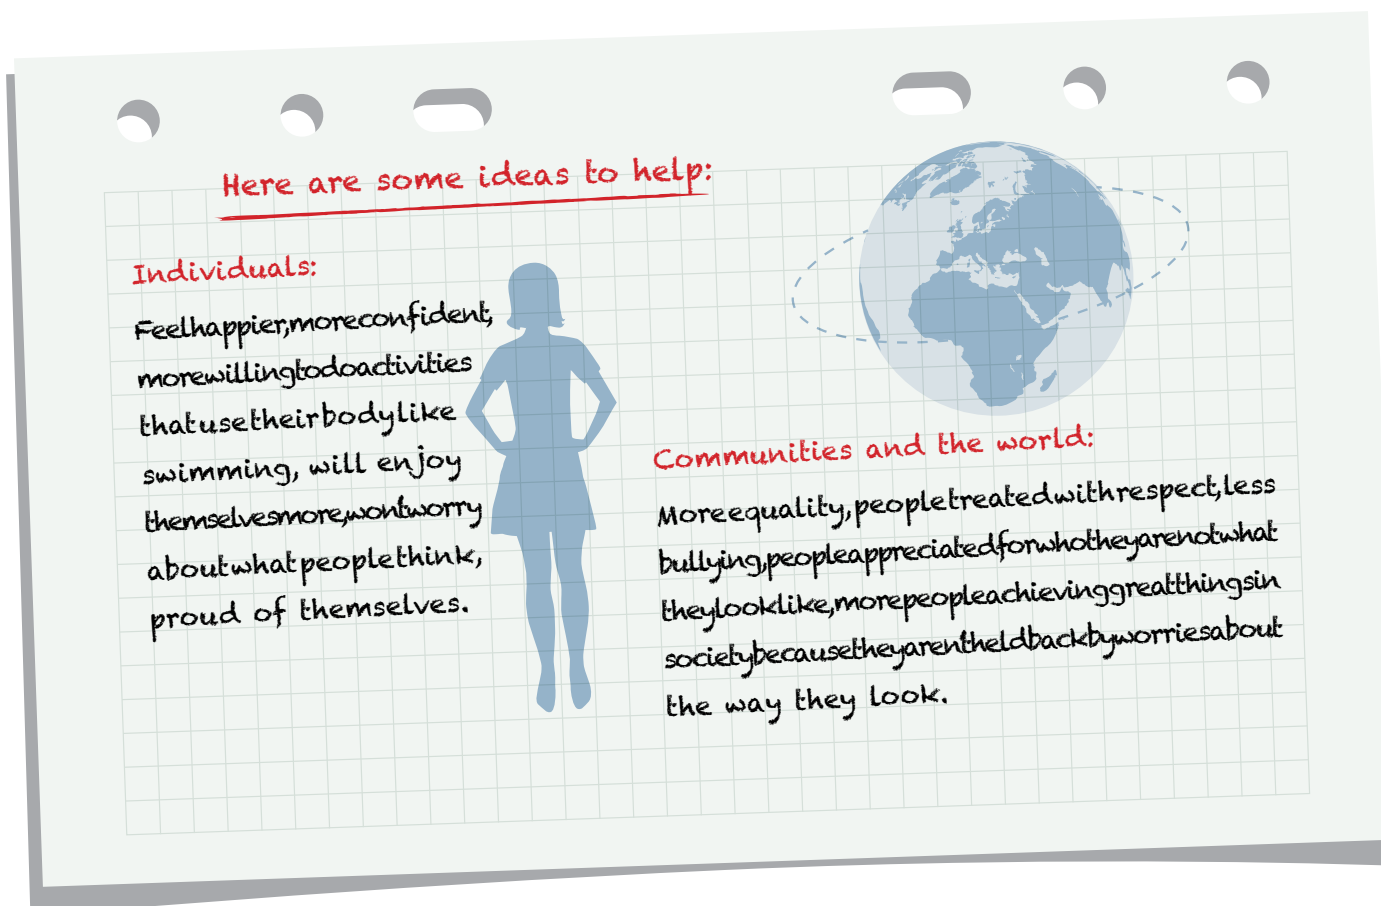 Here are some ideas to help:
Individuals:
Feel happier, more confident,
more willing to do activities
that use their body like
swimming, will enjoy
themselves more, wont worry
about what people think,
proud of themselves.
Communities and the world:
More equality, people treated with respect, less
bullying, people appreciated for who they are not what
they look like, more people achieving great things in
society because they aren't held back by worries about
the way they look.